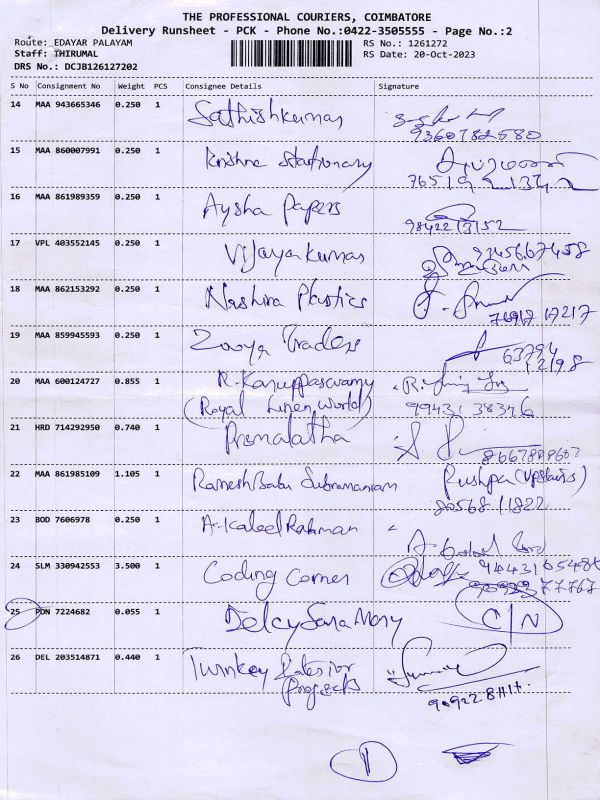 THE PROFESSIONAL COURIERS, COIMBATORE
Delivery Runsheet - PCK - Phone No.:0422-3505555 - Page No.:2
Route: EDAYAR PALAYAM
Staff: THIRUMAL
DRS No.: DCJB126127202
RS No.: 1261272
RS Date: 20-Oct-2023
S No Consignment No Weight PCS Consignee Details Signature
14 MAA 943665346 0.250 1 Sathishkumar
9360782580
15 MAA 860007991 0.250 1 Krishna Stationary
16 MAA 861989359 0.250 1 Aysha Papers
9842213152
17 VPL 403552145 0.250 1 Vijayakumar 9345667458
18 MAA 862153292 0.250 1 Nashira Plastics
76917 17217
19 MAA 859945593 0.250 1 Zooya Traders
63794
12198
20 MAA 600124727 0.855 1 R. Karuppaswamy
(Royal Linen World) 99431 38346
21 HRD 714292950 0.740 1 Premalatha
22 MAA 861985109 1.105 1 Ramesh Babu Subramaniam Pushpa (Upstairs)
80568 11822
23 BOD 7606978 0.250 1 A. Kaleel Rahman
24 SLM 330942553 3.500 1 Coding Corner
90929 77767
25 PDN 7224682 0.055 1 Delcy Sara Mary C/N
26 DEL 203514871 0.440 1 Turnkey Interior
Projects
1